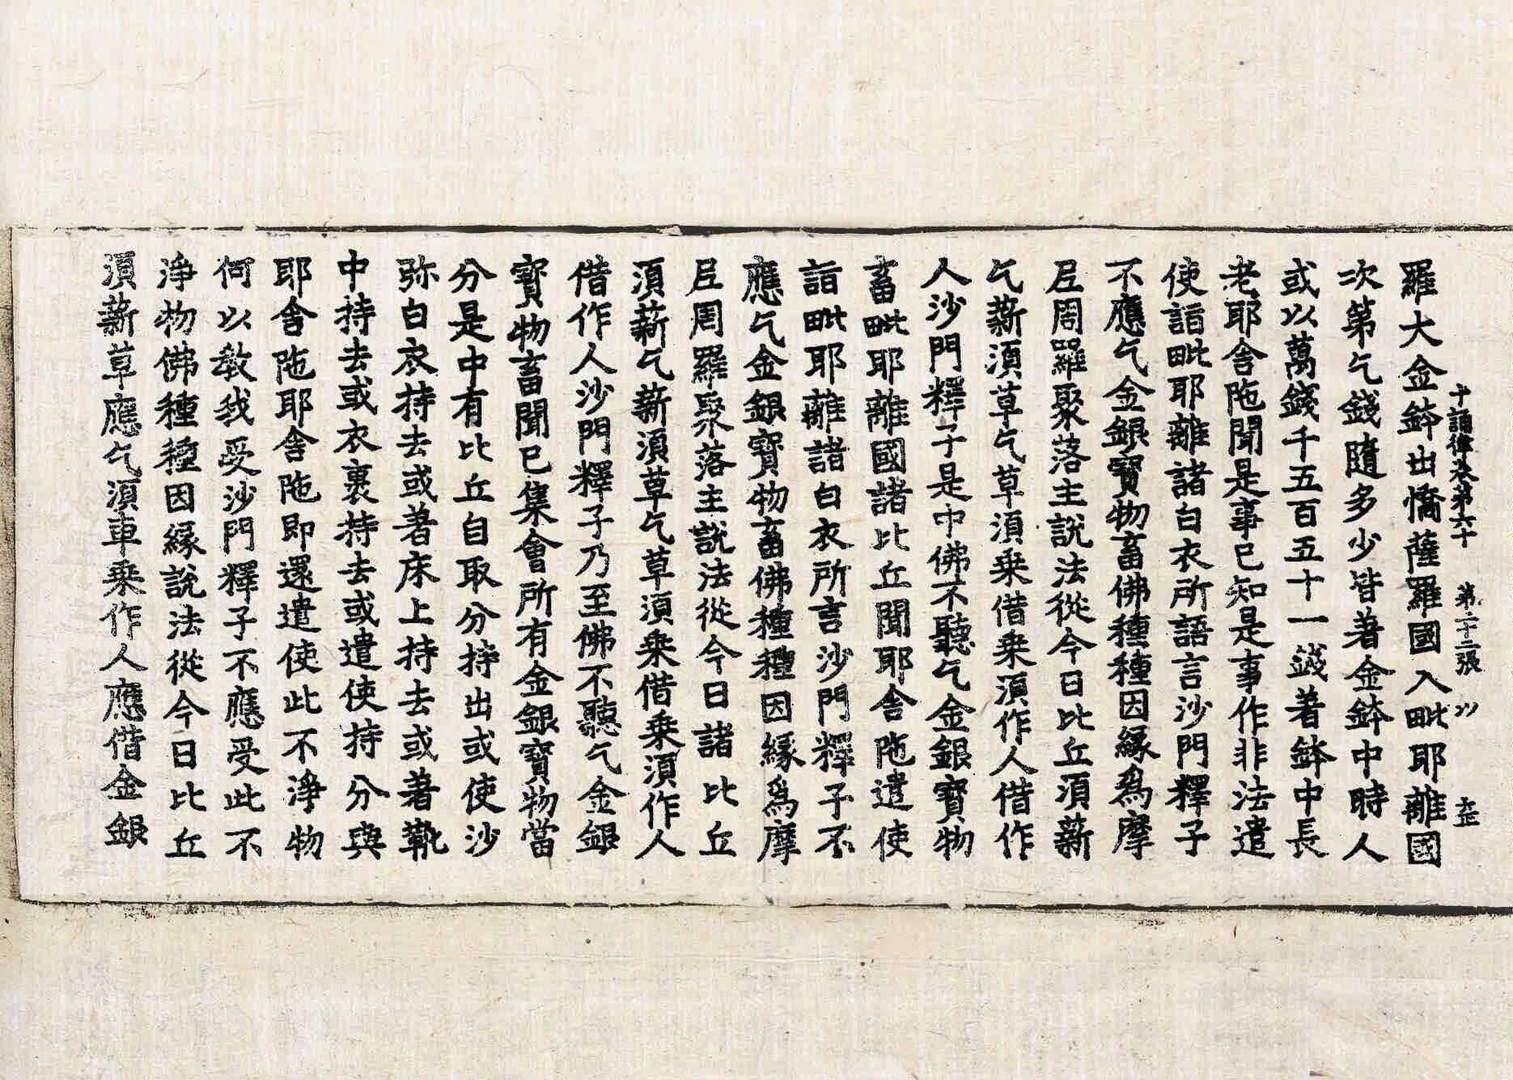 十誦律卷第六十 第二十二張 以
羅大金鉢出憍薩羅國入毗耶離國
次第乞錢隨多少皆著金鉢中時人
或以萬錢千五百五十一錢著鉢中長
老耶舍陁聞是事已知是事作非法遣
使詣毗耶離諸白衣所語言沙門釋子
不應乞金銀寶物畜佛種種因緣爲摩
尼周羅聚落主說法從今日比丘須薪
乞薪須草乞草須乘借乘須作人借作
人沙門釋子是中佛不聽乞金銀寶物
畜毗耶離國諸比丘聞耶舍陁遣使
詣毗耶離諸白衣所言沙門釋子不
應乞金銀寶物畜佛種種因緣爲摩
尼周羅聚落主說法從今日諸比丘
須薪乞薪須草乞草須乘借乘須作人
借作人沙門釋子乃至佛不聽乞金銀
寶物畜聞已集會所有金銀寶物當
分是中有比丘自取分持出或使沙
弥白衣持去或著床上持去或著靴
中持去或衣裹持去或遣使持分與
耶舍陁耶舍陁即還遣使此不淨物
何以教我受沙門釋子不應受此不
淨物佛種種因緣說法從今日比丘
須薪草應乞須車乘作人應借金銀